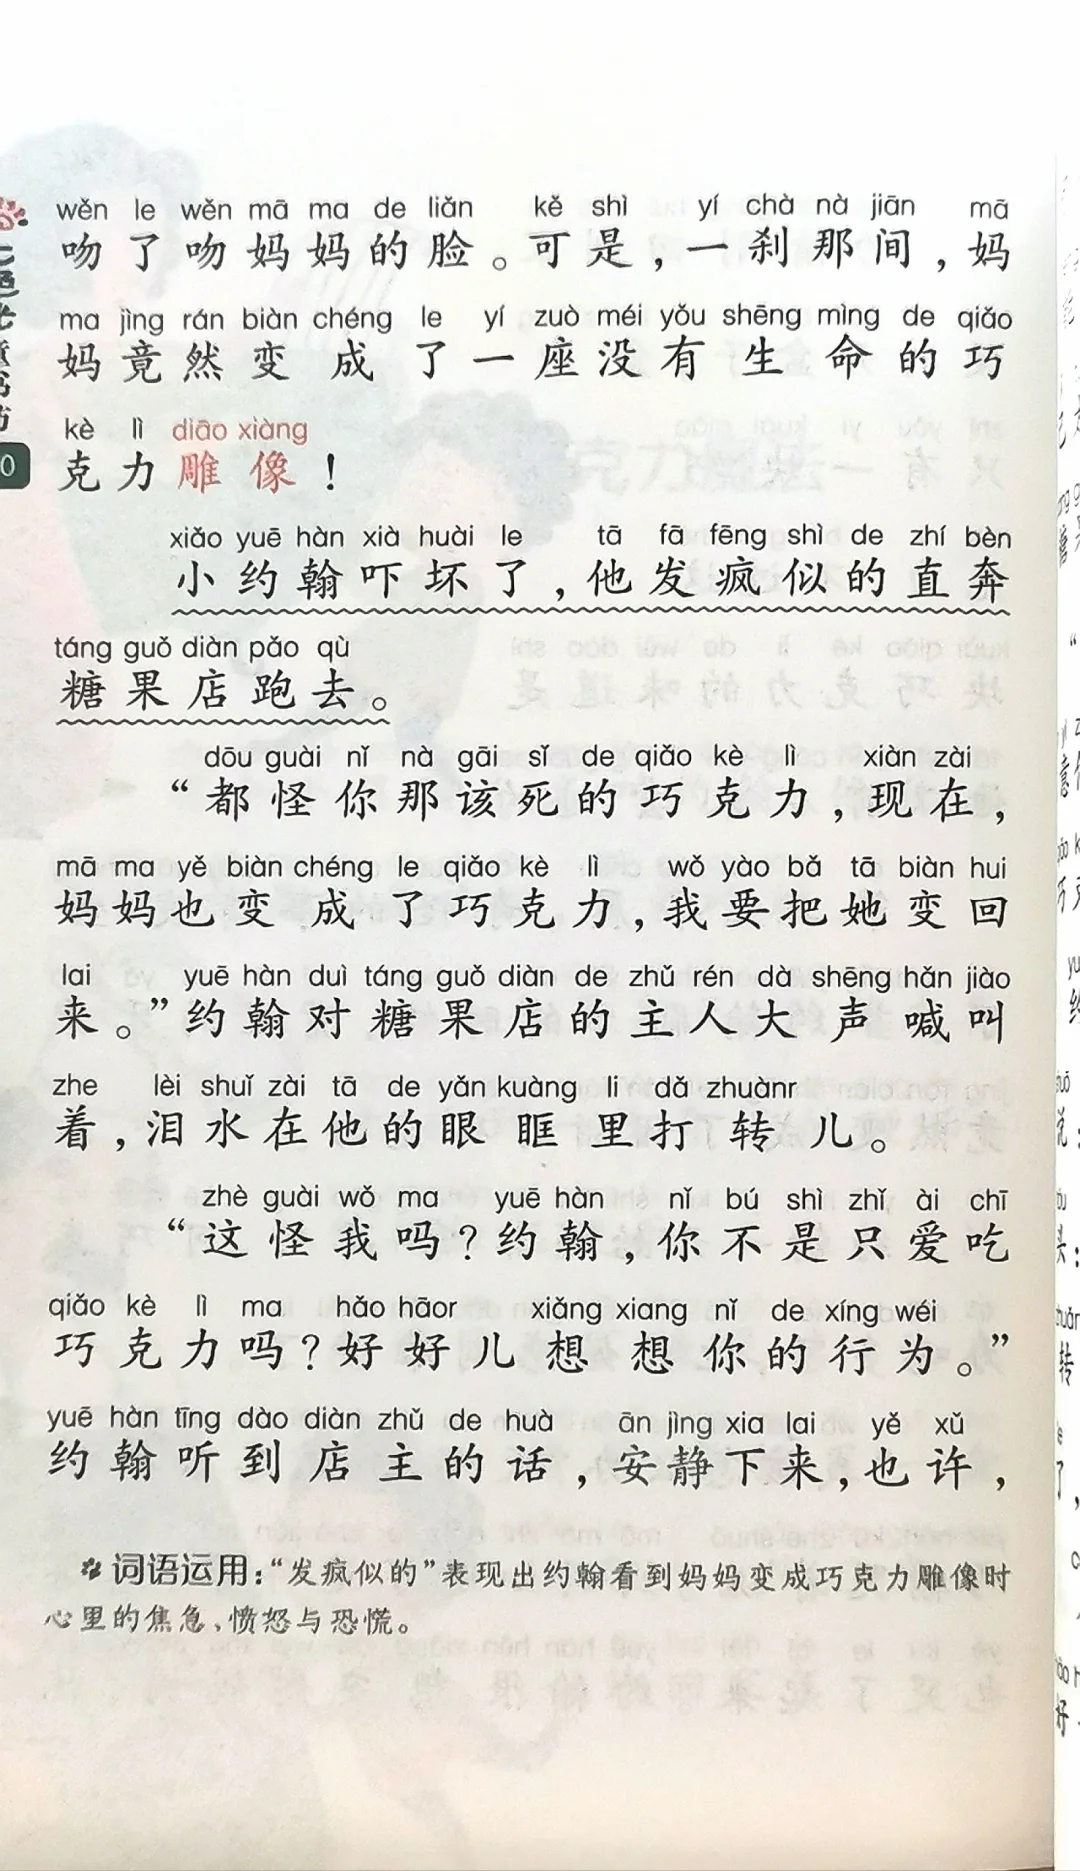 wěn le wěn mā ma de liǎn kě shì yí chà nà jiān mā
吻了吻妈妈的脸。可是，一刹那间，妈
ma jìng rán biàn chéng le yí zuò méi yǒu shēng mìng de qiǎo
妈竟然变成了一座没有生命的巧
kè lì diāo xiàng
克力雕像！
xiǎo yuē hàn xià huài le tā fā fēng shì de zhí bèn
小约翰吓坏了，他发疯似的直奔
táng guǒ diàn pǎo qù
糖果店跑去。
dōu guài nǐ nà gāi sǐ de qiǎo kè lì xiàn zài
“都怪你那该死的巧克力，现在，
mā ma yě biàn chéng le qiǎo kè lì wǒ yào bǎ tā biàn hui
妈妈也变成了巧克力，我要把她变回
lai yuē hàn duì táng guǒ diàn de zhǔ rén dà shēng hǎn jiào
来。”约翰对糖果店的主人大声喊叫
zhe lèi shuǐ zài tā de yǎn kuàng li dǎ zhuànr
着，泪水在他的眼眶里打转儿。
zhè guài wǒ ma yuē hàn nǐ bú shì zhǐ ài chī
“这怪我吗？约翰，你不是只爱吃
qiǎo kè lì ma hǎo hāor xiǎng xiang nǐ de xíng wéi
巧克力吗？好好儿想想你的行为。”
yuē hàn tīng dào diàn zhǔ de huà ān jìng xia lai yě xǔ
约翰听到店主的话，安静下来，也许，
词语运用：“发疯似的”表现出约翰看到妈妈变成巧克力雕像时
心里的焦急、愤怒与恐慌。